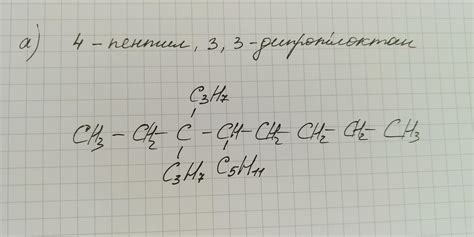 а) 4-пентил, 3,3-дипропілоктан
C₃H₇
CH₃ - CH₂ - C - CH - CH₂ - CH₂ - CH₂ - CH₃
C₃H₇ C₅H₁₁